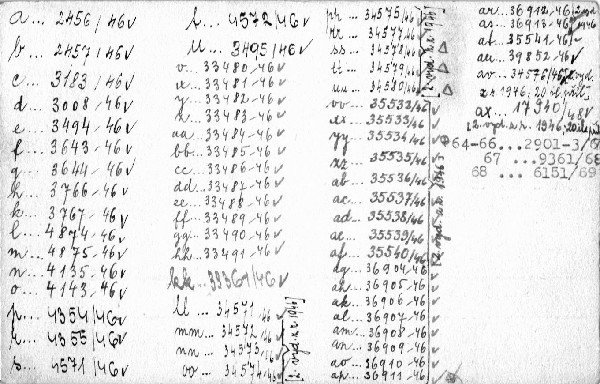 a... 2456/46 v
b... 2457/46 v
c... 3183/46 v
d... 3008-46 v
e... 3494-46 v
f... 3643-46 v
g... 3644-46 v
h... 3766-46 v
k... 3767-46 v
l... 4874-46 v
m... 4875-46 v
n... 4135-46 v
o... 4143-46 v
p... 4354/46 v
r... 4355/46 v
s... 4571/46 v
t... 4572/46 v
u... 3405/46 v
v... 33480-46 v
x... 33481-46 v
y... 33482-46 v
z... 33483-46 v
aa... 33484-46 v
bb... 33485-46 v
cc... 33486-46 v
dd... 33487-46 v
ee... 33488-46 v
ff... 33489-46 v
gg... 33490-46 v
hh... 33491-46 v
kk... 39361/46 v
ll... 34571-46 v
mm... 34572-46 v
nn... 34573-46 v
oo... 34574-46 v
[2. vyd. z r. 1946]
pp... 34575/46 v
rr... 34577/46 v
ss... 34578/46 v
tt... 34579/46 v
uu... 34580/46 v
[2. vyd. z r. 1946]
vv... 35532/46 v
xx... 35533/46 v
yy... 35534/46 v
zz... 35535/46 v
ab... 35536/46 v
ac... 35537/46 v
ad... 35538/46 v
ae... 35539/46 v
af... 35540/46 v
[2. vyd. z r. 1946]
ag... 36904-46 v
ah... 36905-46 v
ak... 36906-46 v
al... 36907-46 v
am... 36908-46 v
an... 36909-46 v
ao... 36910-46 v
ap... 36911-46 v
ar... 36912-46
as... 36913-46 v
at... 35541-46
au... 39852-46 v
av... 34576/46
z r. 1946
ax... 17940/48 v
[2. vyd. z r. 1946
64-66...2901-3/6
67 ...9361/68
68 ... 6151/69